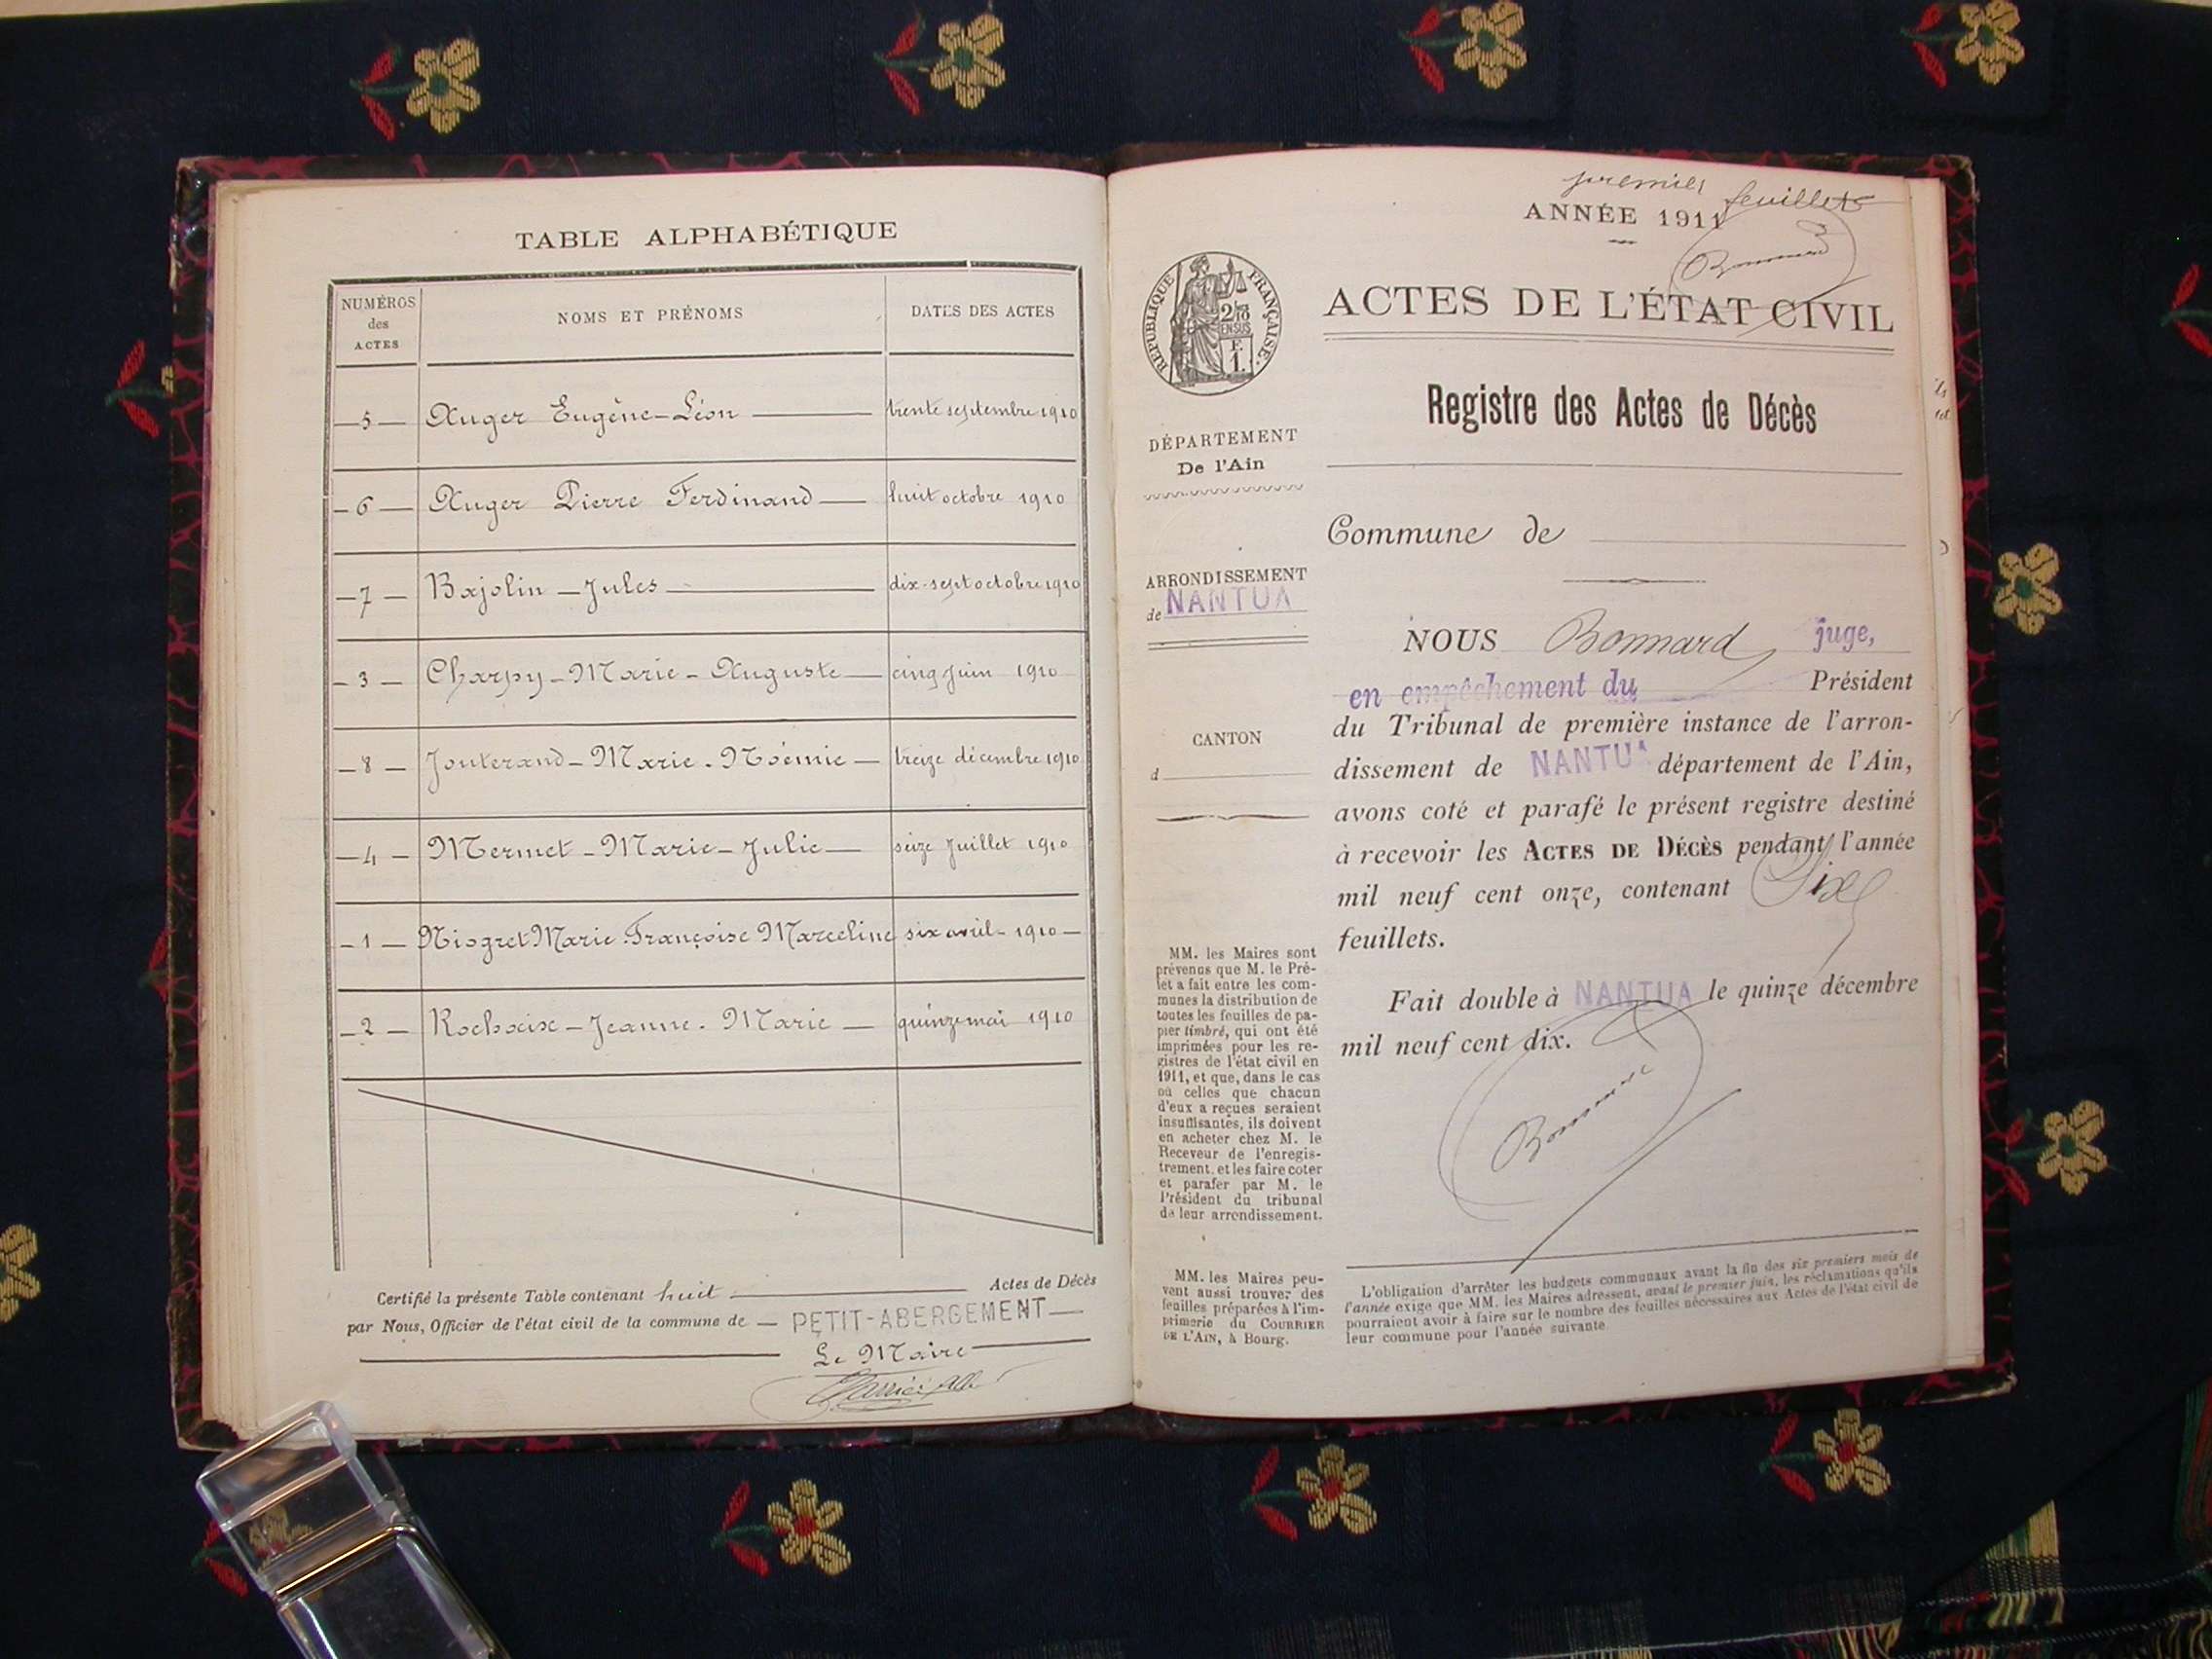 TABLE ALPHABÉTIQUE
NUMÉROS des ACTES
NOMS ET PRÉNOMS
DATES DES ACTES
—5— Auger Eugène-Léon — trente septembre 1910
—6— Auger Pierre Ferdinand — huit octobre 1910
—7— Bajolin — Jules — dix-sept octobre 1910
—3— Charpy-Marie-Auguste — cinq juin 1910
—8— Jouterand-Marie-Noémie — treize décembre 1910
—4— Mermet-Marie-Julie — seize juillet 1910
—1— Niogret Marie Françoise Marceline six avril-1910—
—2— Rochaix-Jeanne-Marie — quinze mai 1910
Certifié la présente Table contenant huit — Actes de Décès
par Nous, Officier de l'état civil de la commune de — PETIT-ABERGEMENT—
Le Maire
premier feuillet
ANNÉE 1911
Bonnard
RÉPUBLIQUE FRANÇAISE.
2/10 EN SUS
F. 1.
ACTES DE L'ÉTAT CIVIL
Registre des Actes de Décès
DÉPARTEMENT
De l'Ain
Commune de
ARRONDISSEMENT
de NANTUA
CANTON
d
NOUS Bonnard, juge,
en empêchement du Président
du Tribunal de première instance de l'arron-
dissement de NANTUA département de l'Ain,
avons coté et parafé le présent registre destiné
à recevoir les ACTES DE DÉCÈS pendant l'année
mil neuf cent onze, contenant Six
feuillets.
Fait double à NANTUA le quinze décembre
mil neuf cent dix.
Bonnard
MM. les Maires sont
prévenus que M. le Pré-
fet a fait entre les com-
munes la distribution de
toutes les feuilles de pa-
pier timbré, qui ont été
imprimées pour les re-
gistres de l'état civil en
1911, et que, dans le cas
où celles que chacun
d'eux a reçues seraient
insuffisantes, ils doivent
en acheter chez M. le
Receveur de l'enregis-
trement, et les faire coter
et parafer par M. le
Président du tribunal
de leur arrondissement.
MM. les Maires peu-
vent aussi trouver des
feuilles préparées à l'im-
primerie du COURRIER
DE L'AIN, à Bourg.
L'obligation d'arrêter les budgets communaux avant la fin des six premiers mois de
l'année exige que MM. les Maires adressent, avant le premier juin, les réclamations qu'ils
pourraient avoir à faire sur le nombre des feuilles nécessaires aux Actes de l'état civil de
leur commune pour l'année suivante.